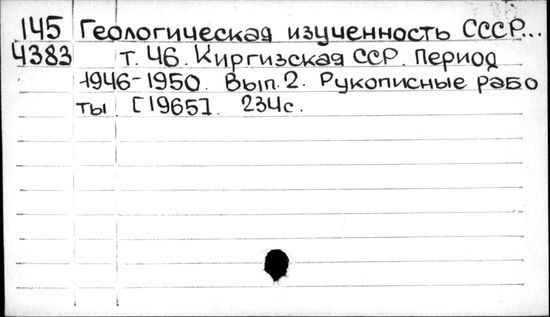 145 Геологическая изученность СССР...
4383 т. 46. Киргизская ССР. Период
1946-1950. Вып. 2. Рукописные рабо
ты. [1965]. 234с.